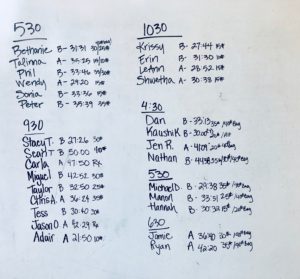 530
Bethanie B - 31:31
Talinna A - 35:25
Phil B - 33:46
Wendy A - 29:20 15#
Sonia B - 33:36 15#
Peter B - 35:39 35#
930
Stacy T. B 27:26 30#
B 50:00
Carla A 47:50 Rx
Miguel B 42:52 30#
Taylor B 32:50 25#
Chris A. A 36:24 35#
Tess B 30:40 20#
Jason O A 42:29 Rx
Adair A 21:50 10#
1030
Krissy B - 27:44 15#
Erin B - 31:30 15#
LeAnn B - 28:52 15#
Shwetha A - 30:38 15#
4:30
Dan B - 33:13
Kaushik B -
Jen R. A -
Nathan B -
530
Michael D. B - 29:38 35#
Manon B - 33:31
Hannah B - 30:32
630
Jamie A 36:40
Ryan A 42:20 35#